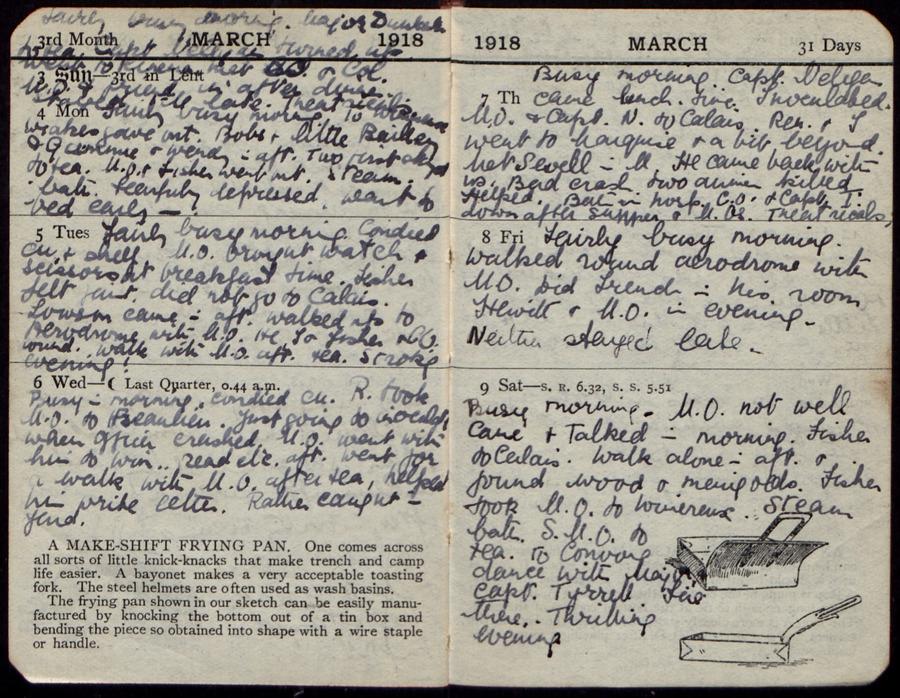 Fairly busy morning. Major
3rd Month MARCH 1918
turned up
3 Sun—3rd in Lent
met CO. & Col.
M.O. & friend in after dinner.
late.
4 Mon Fairly busy morning. To
gave out. Bobs & little Bailey
& wendy - aft. Two first
to tea. M.O. & Fisher went out. Steam
bath. Fearfully depressed, went to
bed early —
5 Tues Fairly busy morning. Condied
cu. & shell. M.O. brought watch &
scissors at breakfast time. Fisher
felt faint, did not go to Calais.
came - aft. walked up to
Aerodrome with M.O. He, So Fisher & CO.
round. walk with M.O. aft. tea. Stroky
evening!
6 Wed—☾ Last Quarter, 0.44 a.m.
Busy - morning, condied cu. R. took
M.O. to Beaulieu. Just going to
when Officer crashed, M.O. went with
him to Wim.. read etc. aft. went for
a walk with M.O. after tea, helped
him write letter. Rather caught -
find.
A MAKE-SHIFT FRYING PAN. One comes across
all sorts of little knick-knacks that make trench and camp
life easier. A bayonet makes a very acceptable toasting
fork. The steel helmets are often used as wash basins.
The frying pan shown in our sketch can be easily manu-
factured by knocking the bottom out of a tin box and
bending the piece so obtained into shape with a wire staple
or handle.
1918 MARCH 31 Days
Busy morning. Capt.
7 Th came lunch. time. Inoculated.
M.O. & Capt. N. to Calais. Ren. & I
went to Marquise & a bit beyond.
Met Sewell - M. He came back with
us. Bad crash, two killed.
Helped. Bath in hosp. C.O. & Capt. I.
down after supper & M.Os. Theatricals,
8 Fri Fairly busy morning.
Walked round aerodrome with
M.O. Did French - his room
Hewitt & M.O. in evening.
Neither stayed late.
9 Sat—S. R. 6.32, S. S. 5.51
Busy morning. M.O. not well
Came & Talked - morning. Fisher
to Calais. Walk alone - aft. &
found wood & Fisher
took M.O. to Wimereux.. Steam
bath. S.M.O. to
tea. To Convoy
dance with Major
Capt. Tyrrell
there.. Thrilling
evening